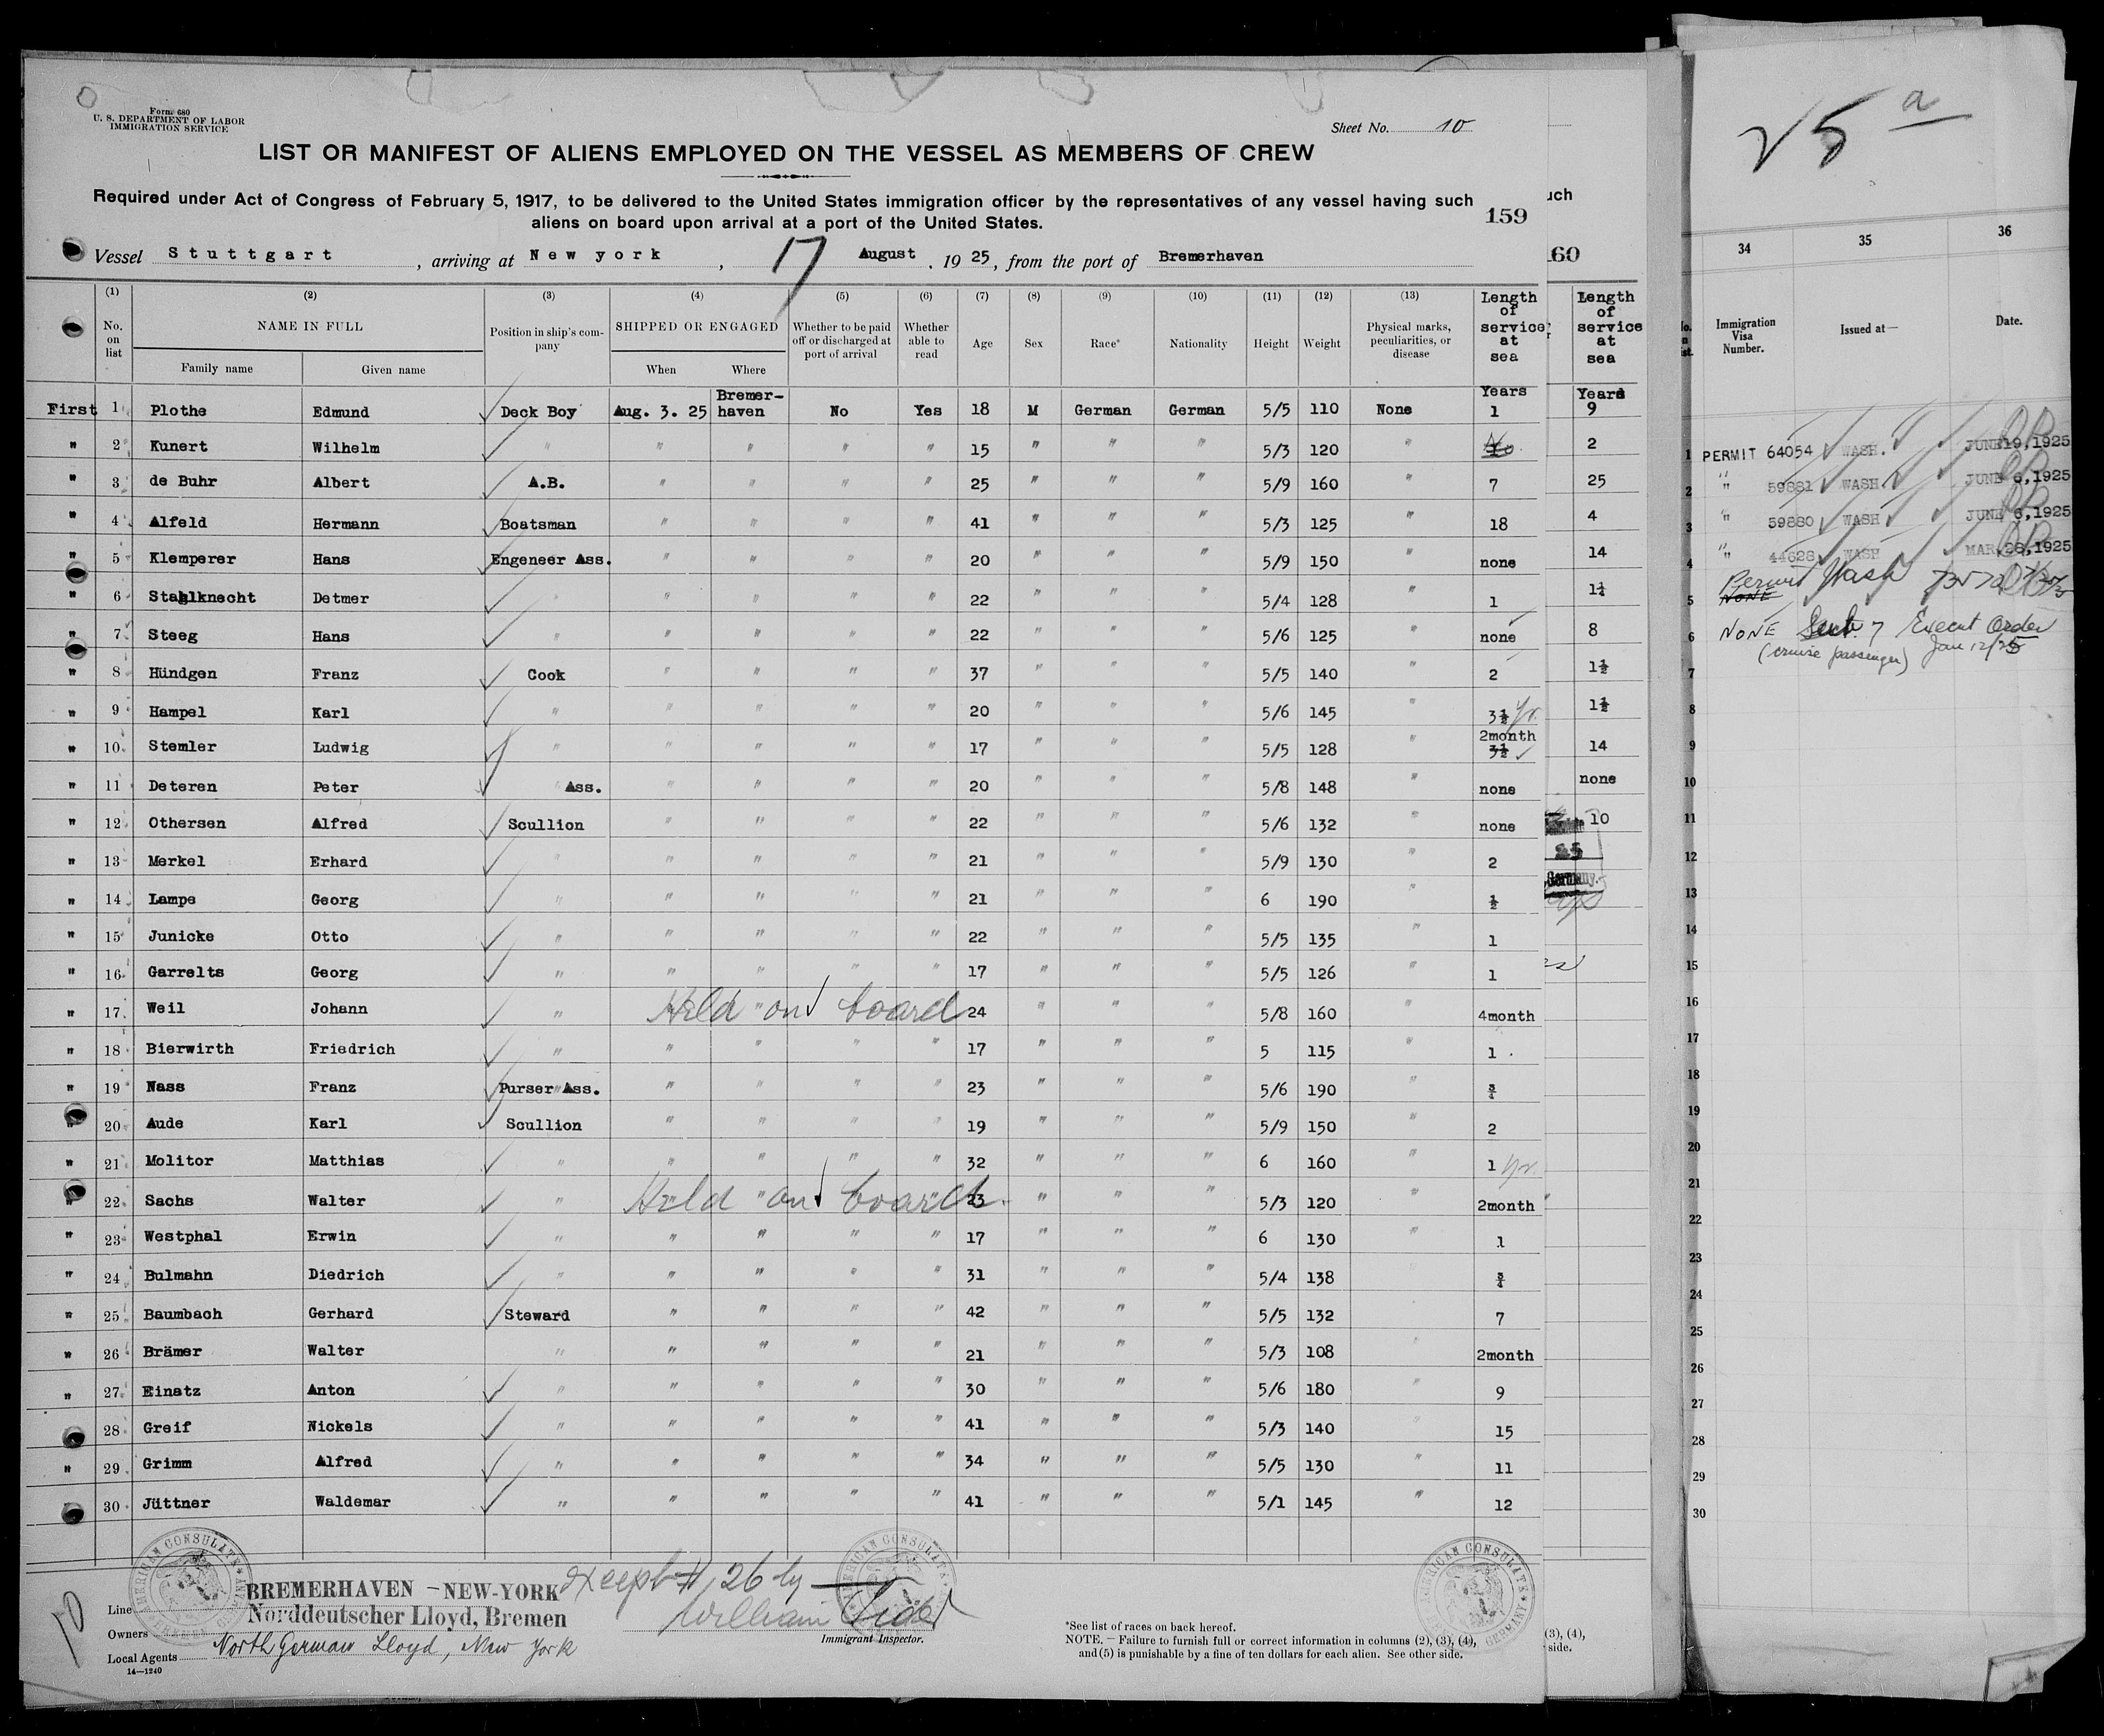 Form 680
U. S. DEPARTMENT OF LABOR
IMMIGRATION SERVICE
Sheet No. 10
LIST OR MANIFEST OF ALIENS EMPLOYED ON THE VESSEL AS MEMBERS OF CREW
Required under Act of Congress of February 5, 1917, to be delivered to the United States immigration officer by the representatives of any vessel having such
aliens on board upon arrival at a port of the United States.
159
Vessel Stuttgart, arriving at New york, 17 August, 1925, from the port of Bremerhaven
(1) (2) (3) (4) (5) (6) (7) (8) (9) (10) (11) (12) (13)
No. on list | NAME IN FULL | Position in ship's company | SHIPPED OR ENGAGED | Whether to be paid off or discharged at port of arrival | Whether able to read | Age | Sex | Race* | Nationality | Height | Weight | Physical marks, peculiarities, or disease | Length of service at sea
Family name | Given name | When | Where
Years
First 1 Plothe Edmund Deck Boy Aug. 3. 25 Bremerhaven No Yes 18 M German German 5/5 110 None 1
" 2 Kunert Wilhelm " " " " " 15 " " " 5/3 120 "
" 3 de Buhr Albert A.B. " " " " 25 " " " 5/9 160 " 7
" 4 Alfeld Hermann Boatsman " " " " 41 " " " 5/3 125 " 18
" 5 Klemperer Hans Engeneer Ass. " " " " 20 " " " 5/9 150 none
" 6 Stahlknecht Detmer " " " " " 22 " " " 5/4 128 " 1
" 7 Steeg Hans " " " " " 22 " " " 5/6 125 " none
" 8 Hündgen Franz Cook " " " " 37 " " " 5/5 140 " 2
" 9 Hampel Karl " " " " " 20 " " " 5/6 145 " 3½ yr.
" 10 Stemler Ludwig " " " " " 17 " " " 5/5 128 " 2month 3½
" 11 Deteren Peter " Ass. " " " " 20 " " " 5/8 148 " none
" 12 Othersen Alfred Scullion " " " " 22 " " " 5/6 132 " none
" 13 Merkel Erhard " " " " " 21 " " " 5/9 130 " 2
" 14 Lampe Georg " " " " " 21 " " " 6 190 " ½
" 15 Junicke Otto " " " " " 22 " " " 5/5 135 " 1
" 16 Garrelts Georg " " " " " 17 " " " 5/5 126 " 1
" 17 Weil Johann " Held on board 24 " " " 5/8 160 " 4month
" 18 Bierwirth Friedrich " " " " " 17 " " " 5 115 " 1
" 19 Nass Franz Purser Ass. " " " " 23 " " " 5/6 190 " ¾
" 20 Aude Karl Scullion " " " " 19 " " " 5/9 150 " 2
" 21 Molitor Matthias " " " " " 32 " " " 6 160 " 1 yr.
" 22 Sachs Walter " Held on board 23 " " " 5/3 120 " 2month
" 23 Westphal Erwin " " " " " 17 " " " 6 130 " 1
" 24 Bulmahn Diedrich " " " " " 31 " " " 5/4 138 ¾
" 25 Baumbach Gerhard Steward " " " " 42 " " " 5/5 132 7
" 26 Brämer Walter " " " " " 21 " " " 5/3 108 " 2month
" 27 Einatz Anton " " " " " 30 " " " 5/6 180 " 9
" 28 Greif Nickels " " " " " 41 " " " 5/3 140 " 15
" 29 Grimm Alfred " " " " " 34 " " " 5/5 130 " 11
" 30 Jüttner Waldemar " " " " " 41 " " " 5/1 145 " 12
10
AMERICAN CONSULATE
AMERICAN CONSULATE
AMERICAN CONSULATE GERMANY
Line BREMERHAVEN – NEW-YORK
Owners Norddeutscher Lloyd, Bremen
Local Agents North German Lloyd, New York
14—1240
except #, 26 by
William
Immigrant Inspector.
*See list of races on back hereof.
NOTE. – Failure to furnish full or correct information in columns (2), (3), (4),
and (5) is punishable by a fine of ten dollars for each alien. See other side.
uch
60
Length
of
service
at
sea
Years
9
2
25
4
14
1¼
8
1½
1½
14
none
10
25
Germany.
(3), (4),
side.
25 a
34 35 36
Immigration Visa Number. Issued at— Date.
1 PERMIT 64054 WASH. JUNE 19, 1925
2 " 59881 WASH. JUNE 6, 1925
3 " 59880 WASH JUNE 6, 1925
4 " 44628 WASH MAR. 28, 1925
5 Permit Wash
NONE
6 NONE Sect. 7 Execut Order
(cruise passenger) Jan 12/25
7
8
9
10
11
12
13
14
15
16
17
18
19
20
21
22
23
24
25
26
27
28
29
30